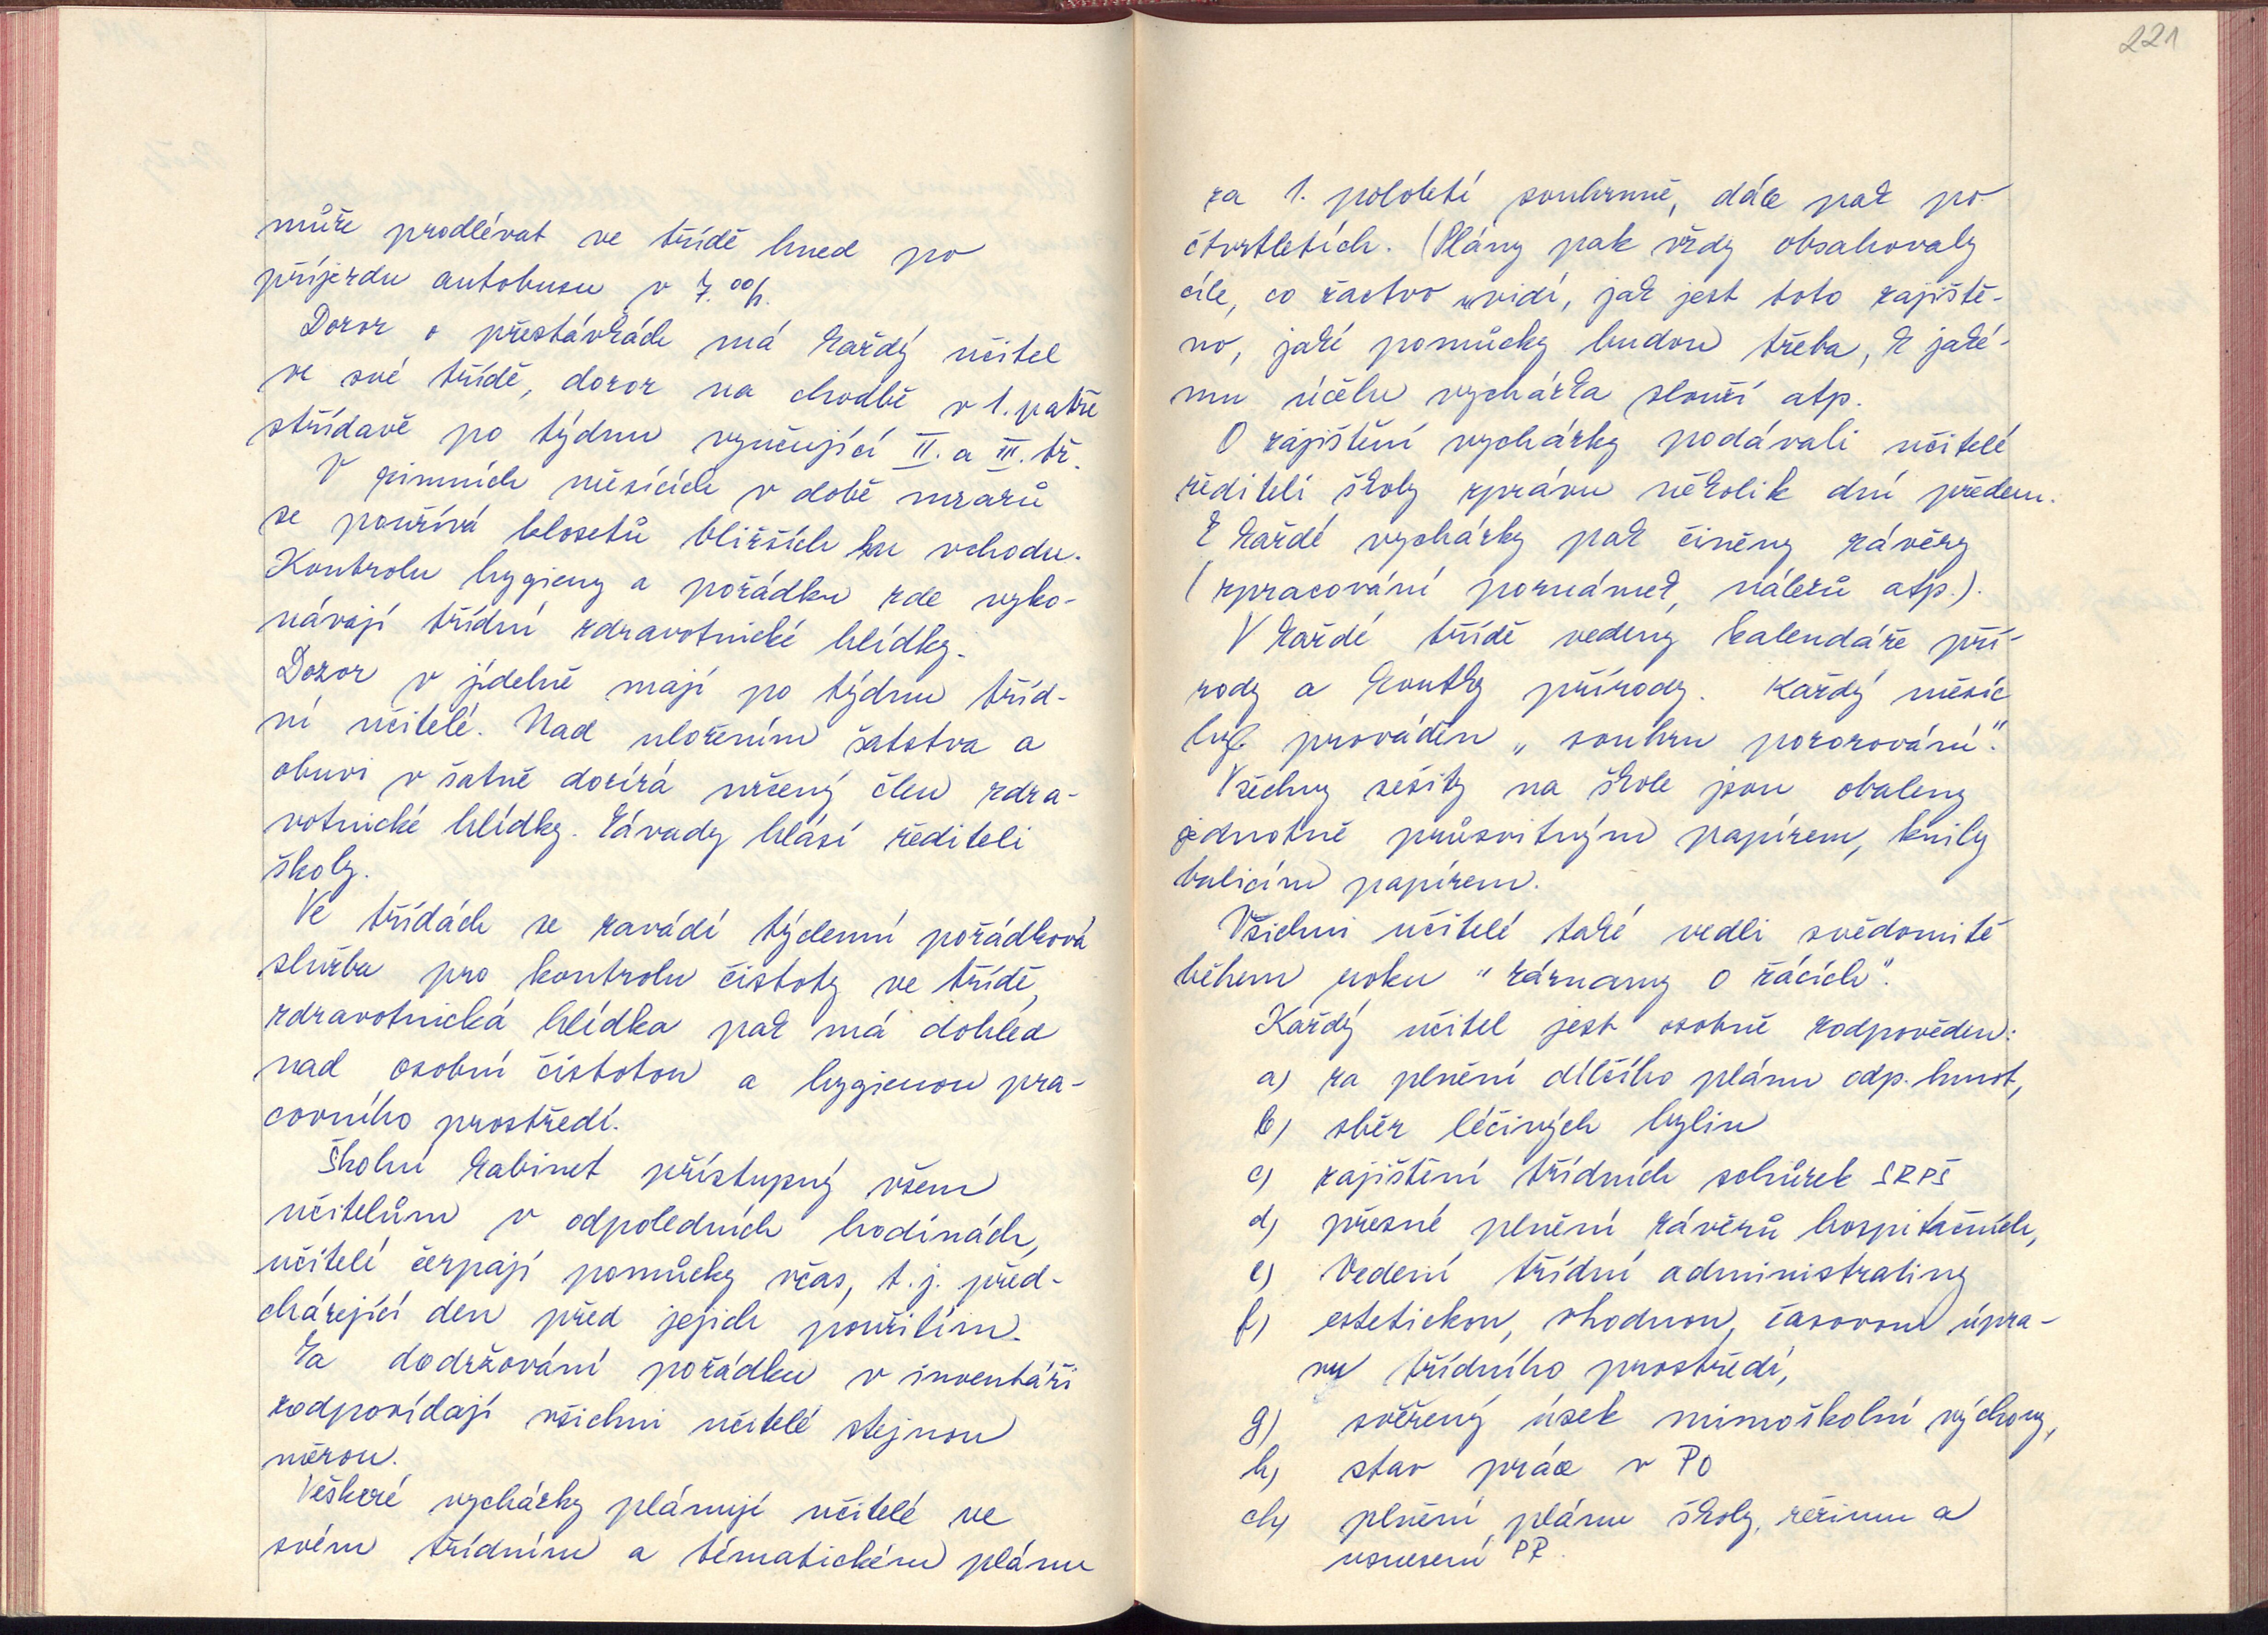 může prodlévat ve třídě hned po
příjezdu autobusu v 7.00h.
Dozor o přestávkách má každý učitel
ve své třídě, dozor na chodbě v 1. patře
střídavě po týdnu vyučující II. a III. tř.
V zimních měsících v době mrazů
se používá klosetů bližších ku vchodu.
Kontrolu hygieny a pořádku zde vyko-
návají třídní zdravotnické hlídky.
Dozor v jídelně mají po týdnu tříd-
ní učitelé. Nad uložením šatstva a
obuvi v šatně dozírá určený člen zdra-
votnické hlídky. Závady hlásí řediteli
školy.
Ve třídách se zavádí týdenní pořádková
služba pro kontrolu čistoty ve třídě,
zdravotnická hlídka pak má dohled
nad osobní čistotou a hygienou pra-
covního prostředí.
Školní kabinet přístupný všem
učitelům v odpoledních hodinách,
učitelé čerpají pomůcky včas, t. j. před-
cházející den před jejich použitím.
Za dodržování pořádku v inventáři
zodpovídají všichni učitelé stejnou
měrou.
Veškeré vycházky plánují učitelé ve
svém třídním a tématickém plánu
221
za 1. pololetí souhrnně, dále pak po
čtvrtletích. (Plány pak vždy obsahovaly
cíle, co žactvo uvidí, jak jest toto zajiště-
no, jaké pomůcky budou třeba, k jaké-
mu účelu vycházka slouží atp.
O zajištění vycházky podávali učitelé
řediteli školy zprávu několik dní předem.
Z každé vycházky pak činěny závěry
(zpracování poznámek, nálezů atp.).
V každé třídě vedeny kalendáře pří-
rody a koutky přírody. Každý měsíc
byl prováděn „souhrn pozorování".
Všechny sešity na škole jsou obaleny
jednotně průsvitným papírem, knihy
balicím papírem.
Všichni učitelé také vedli svědomitě
během roku "záznamy o žácích".
Každý učitel jest osobně zodpověden:
a) za plnění dílčího plánu odp. hmot,
b) sběr léčivých bylin
c) zajištění třídních schůzek SRPŠ
d) přesné plnění závěrů hospitačních,
e) Vedení třídní administrativy
f) estetickou, vhodnou, časovou úpra-
vu třídního prostředí,
g) svěřený úsek mimoškolní výchovy,
h) stav práce v PO
ch) plnění plánu školy, režimu a
usnesení PR.